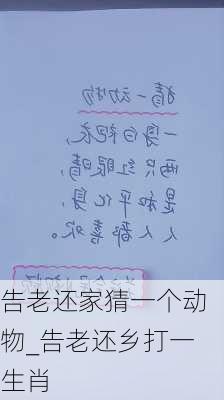 猜一动物
一身白袍衣，
两只红眼睛，
是和平化身，
人人都喜欢。
告老还家猜一个动
物_告老还乡打一
生肖